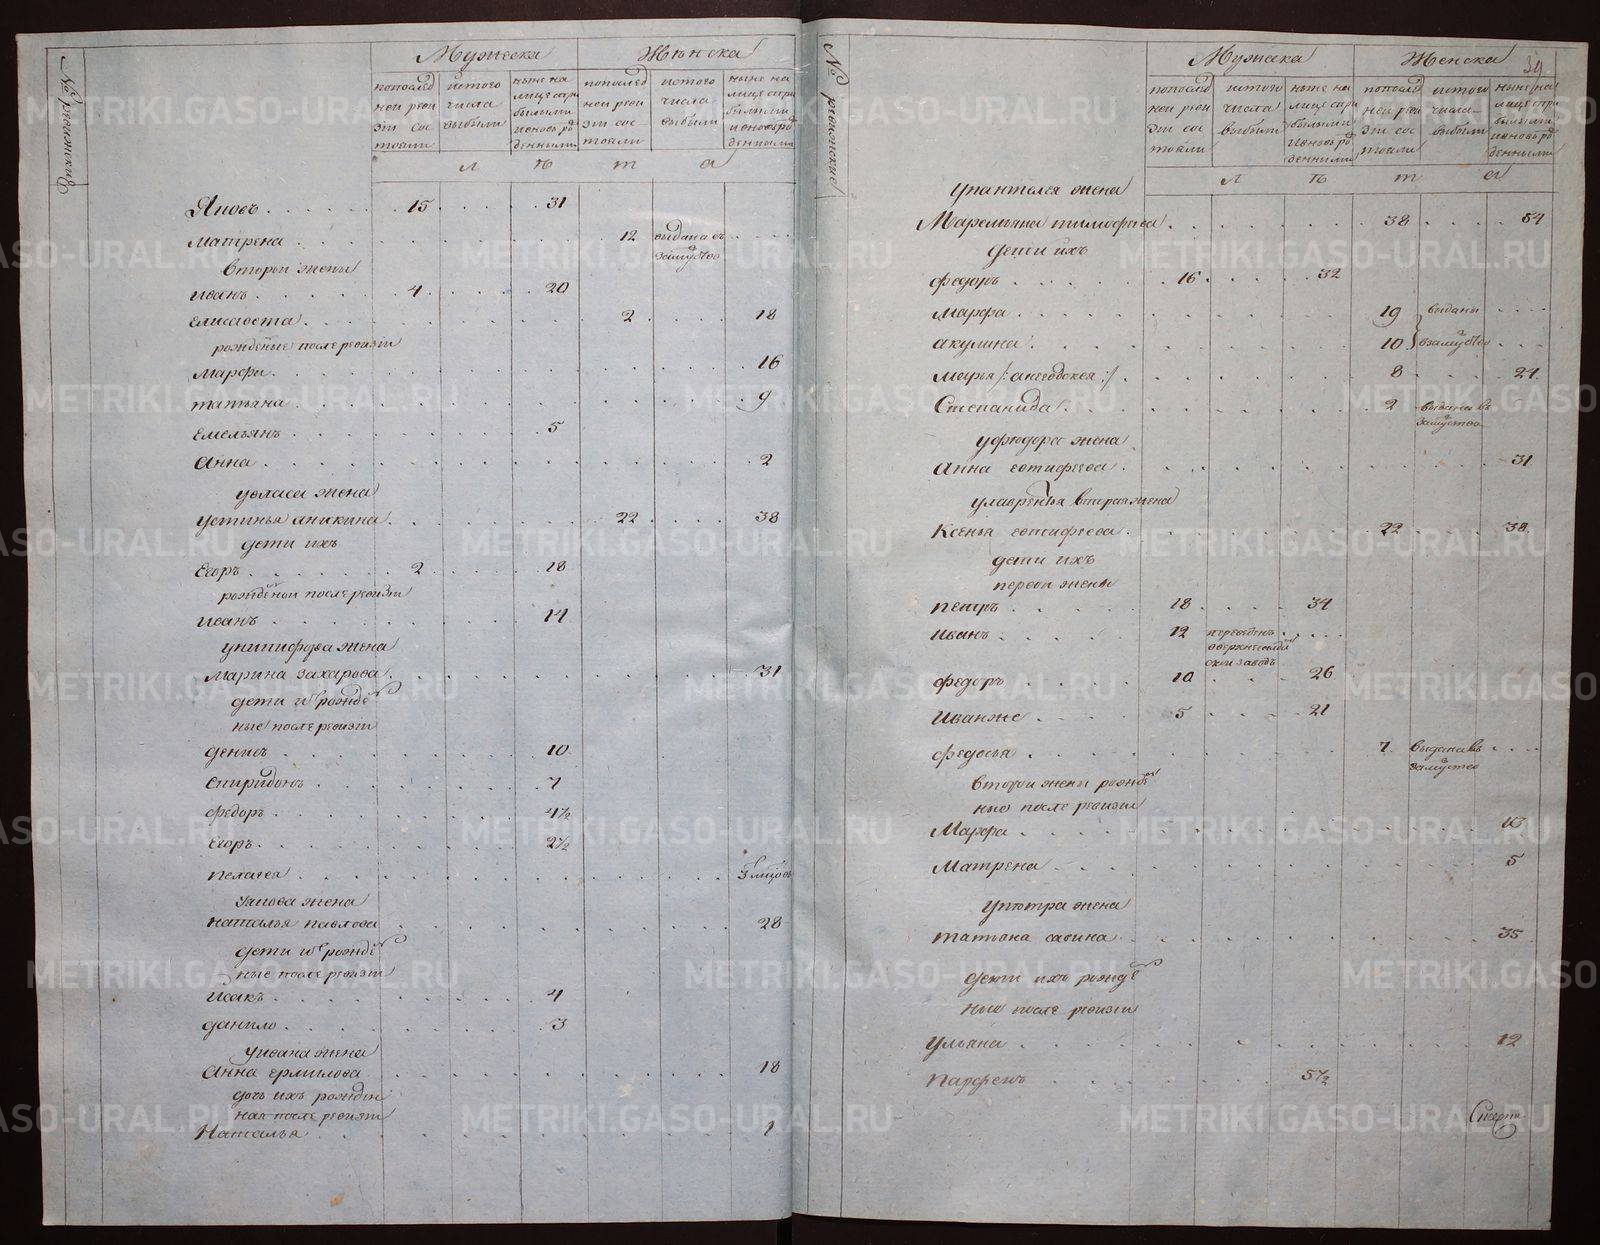 № ревизские
Мужеска Женска
по последней ревизии состояли
ис того числа выбыли
ныне на лице с прибылыми и новорожденными
по последней ревизии состояли
ис того числа выбыли
ныне на лице с прибылыми и новорожденными
л ѣ т а
Яковъ 15 31
матрена 12 выдана въ замуство
второй жены
иванъ 4 20
елисавета 2 18
рожденые после ревизiи
марфа 16
татьяна 9
емельянъ 5
анна 2
увласа жена
устинья аникина 22 38
дети ихъ
Егоръ 2 18
рожденой после ревизiи
иванъ 14
Марина захарова 31
дети ихъ рожденые после ревизiи
денисъ 10
спиридонъ 7
федоръ 4½
Егоръ 2½
пелагея
уякова жена
наталья павлова 28
дети ихъ рожденые после ревизiи
исакъ 4
данило 3
уивана жена
анна ермилова 18
дочь ихъ рожденная после ревизiи
Наталья 1
№ ревизские
Мужеска Женска
39
по последней ревизии состояли
ис того числа выбыли
ныне на лице с прибылыми и новорожденными
по последней ревизии состояли
ис того числа выбыли
ныне на лице с прибылыми и новорожденными
л ѣ т а
упантелея жена
Маремьяна тимофеева 38 54
дети ихъ
федоръ 16 32
марфа 19 выданы
акулина 10 взамуство
марья /: 8 24
Степанида 2 выдана въ замуство
уфедора жена
анна евтифеева 31
улаврентья вторая жена
Ксенья евтифеева 22 38
дети ихъ
первой жены
петръ 18 34
иванъ 12 переведенъ заводъ
федоръ 10 26
Иванже 5 21
федосья 7 выдана въ замуство
второй жены рожденые после ревизiи
Марфа 13
Матрена 5
упетра жена
татьяна савина 35
дети ихъ рожденые после ревизiи
ульяна 12
парфенъ 5½
METRIKI.GASO-URAL.RU